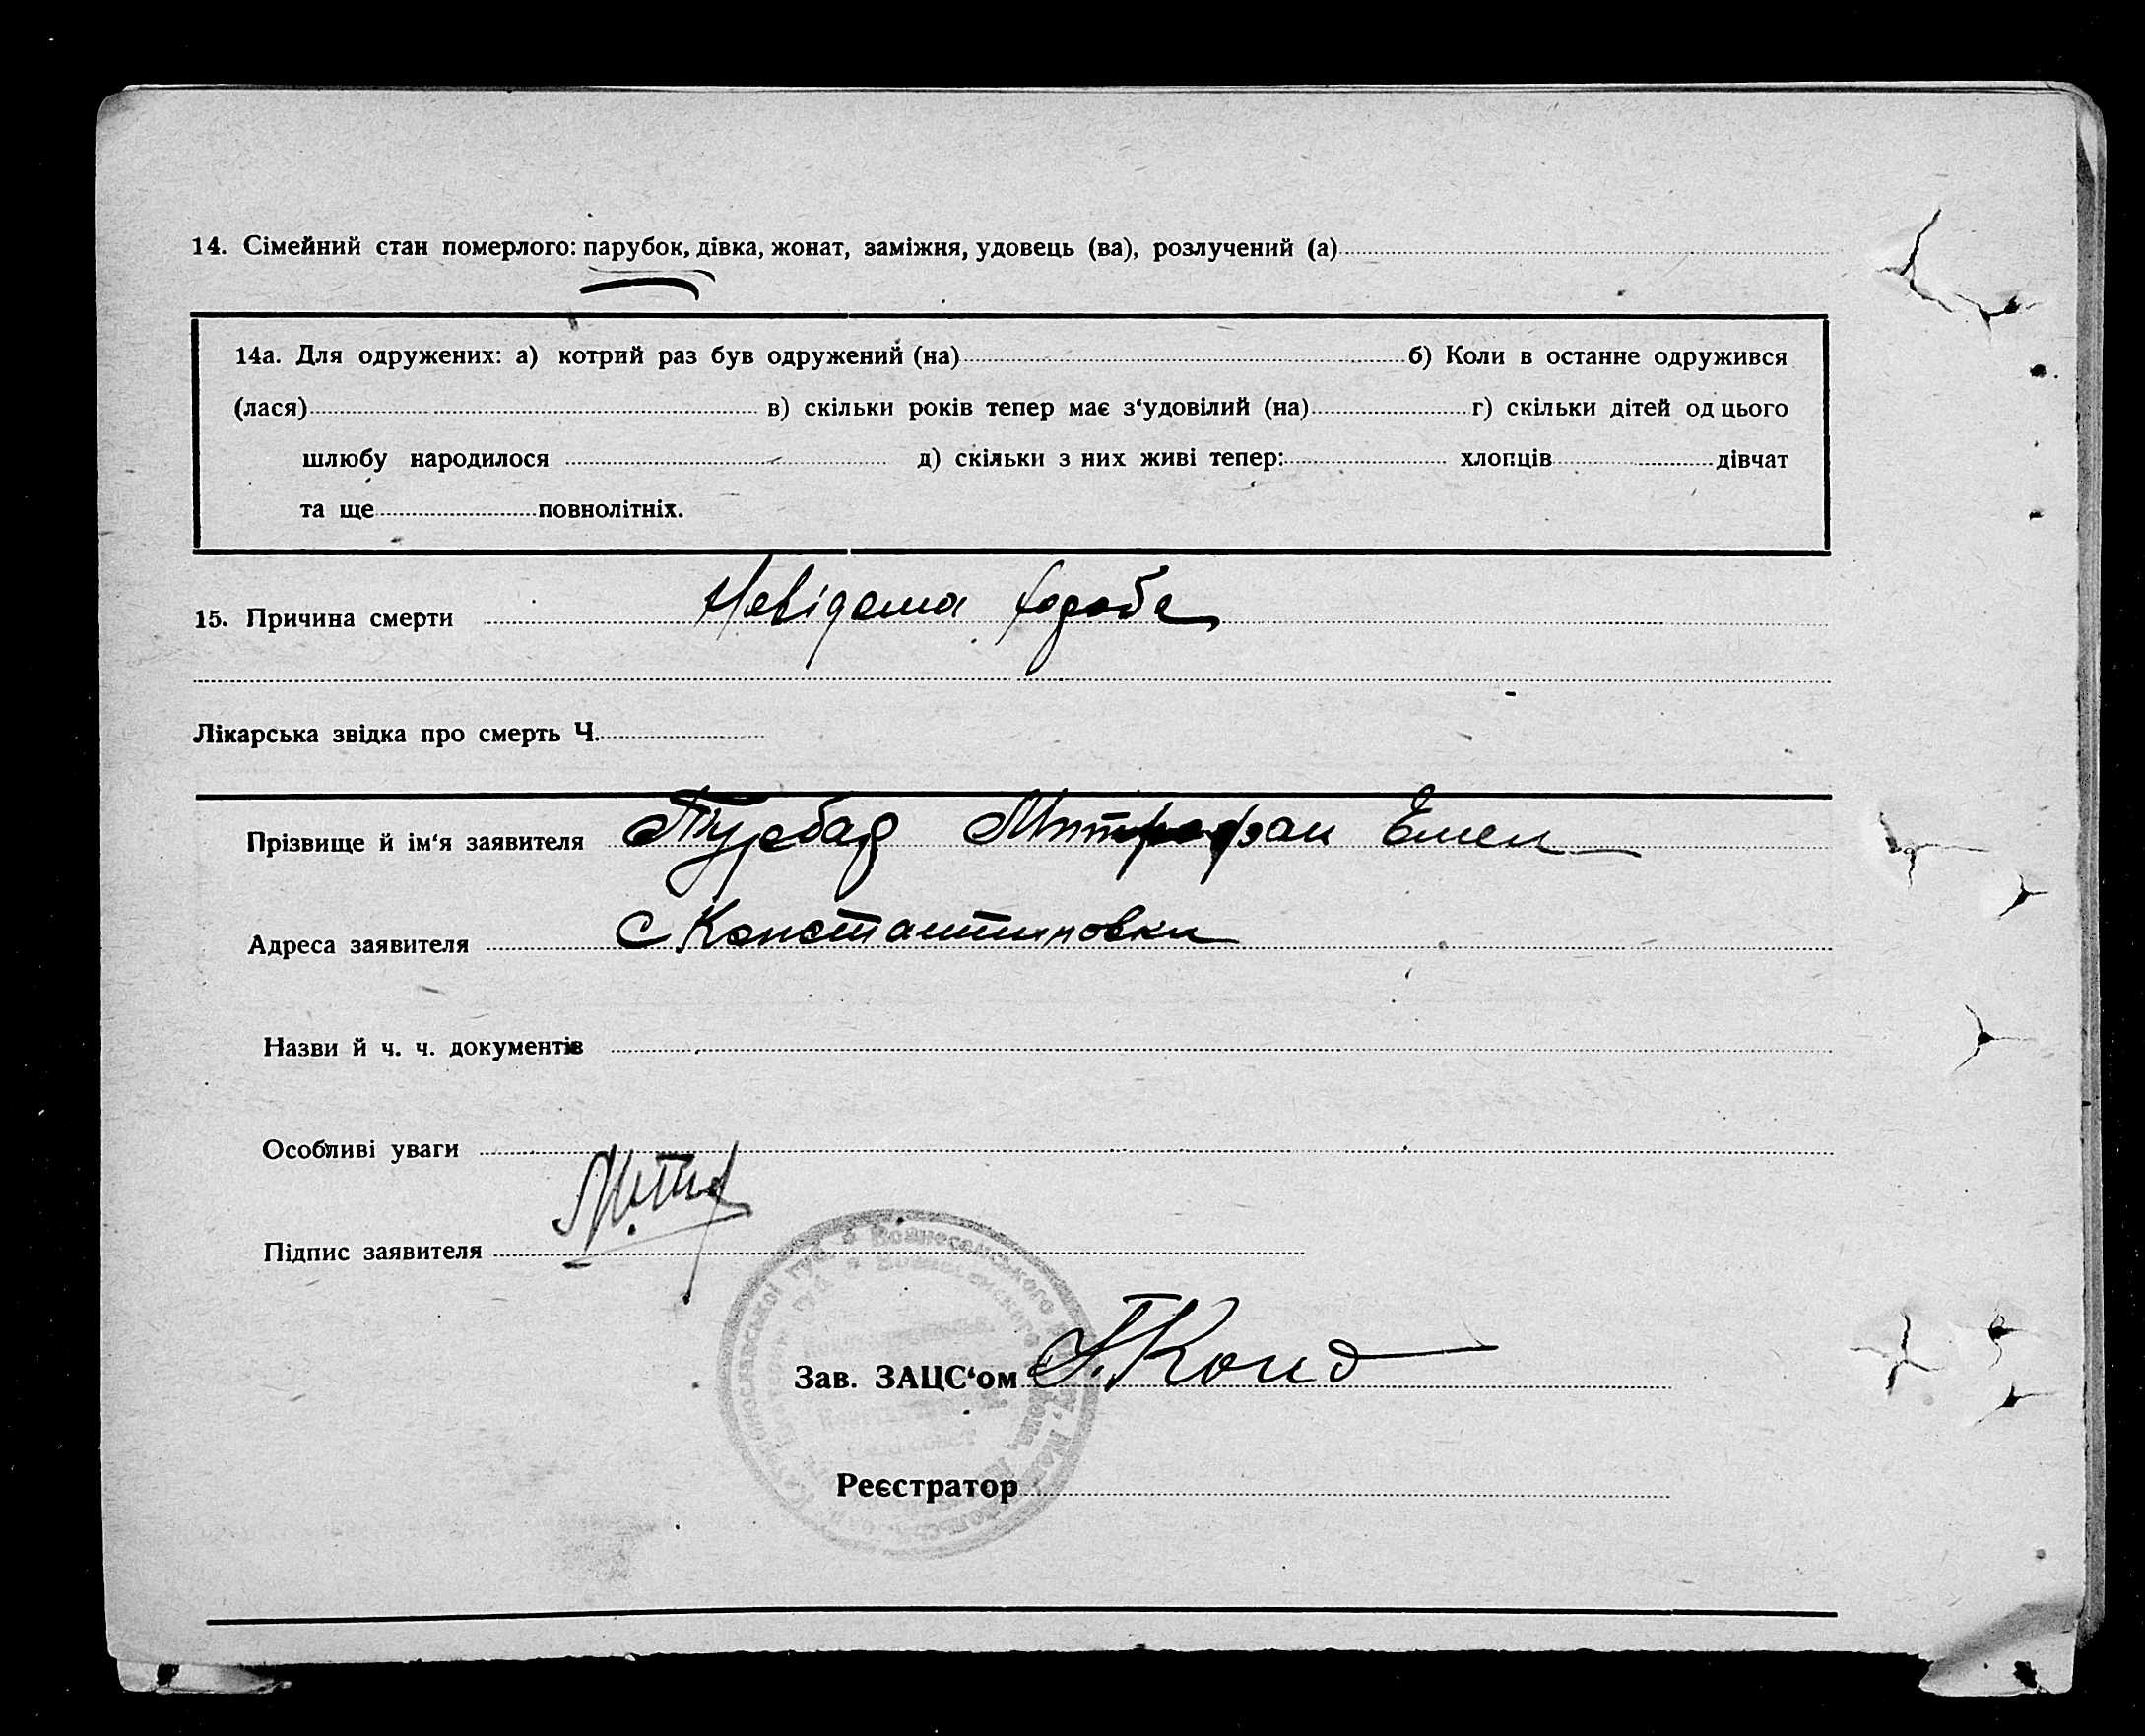 14. Сімейний стан померлого: парубок, дівка, жонат, заміжня, удовець (ва), розлучений (а)
14а. Для одружених: а) котрий раз був одружений (на) б) Коли в останне одружився
(лася) в) скільки років тепер має з‘удовілий (на) г) скільки дітей од цього
шлюбу народилося д) скільки з них живі тепер: хлопців дівчат
та ще повнолітніх.
15. Причина смерти Невідома хороба
Лікарська звідка про смерть Ч.
Прізвище й ім‘я заявителя Митрофан Емел
Адреса заявителя С Константиновки
Назви й ч. ч. документів
Особливі уваги
Підпис заявителя
Вознесенського
Зав. ЗАЦС‘ом
Реєстратор